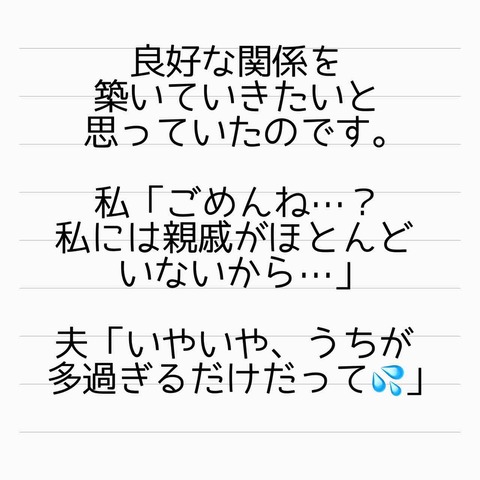 良好な関係を
築いていきたいと
思っていたのです。
私「ごめんね…？
私には親戚がほとんど
いないから…」
夫「いやいや、うちが
多過ぎるだけだって💦」